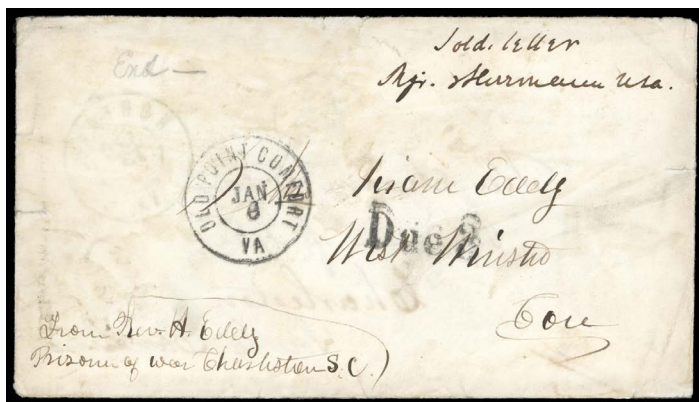 Sold. letter
Mjr. Herrmann USA.
End —
OLD POINT COMFORT
JAN
8
VA
Hiram Eddy
Due 3
West Winsted
Con
From Rev. H. Eddy
Prisoner of war Charleston S.C.)